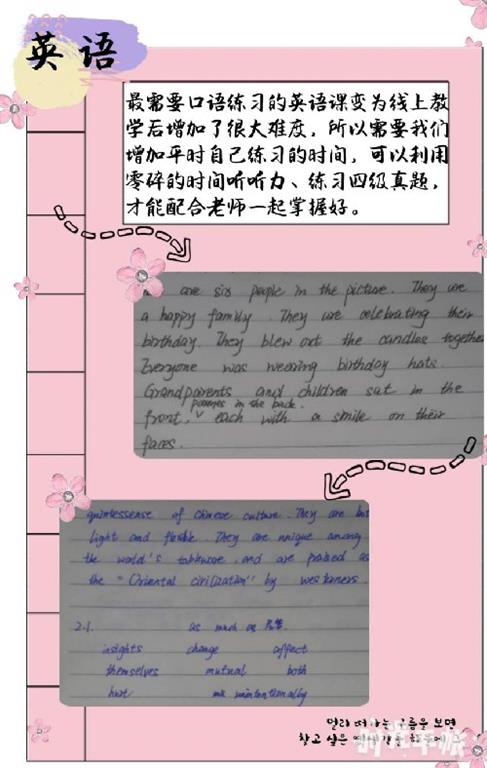 英语
最需要口语练习的英语课变为线上教
学后增加了很大难度，所以需要我们
增加平时自己练习的时间，可以利用
零碎的时间听听力、练习四级真题，
才能配合老师一起掌握好。
are six people in the picture. They are
a happy family. They are celebrating their
birthday. They blew out the candles together
Everyone was wearing birthday hats.
Grandparents and children sat in the
parents in the back.
front, each with a smile on their
faces.
quintessense of Chinese culture. They are
light and flexible. They are unique among
the world's tableware, and are praised as
the "Oriental civilization" by westerners.
2.1. as much as
insights change affect
themselves mutual both
hurt unintentionally
멀리 떠가는 구름을 보면
찾고 싶은
时光手帐